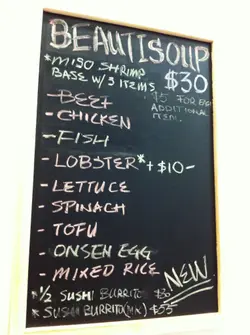 BEAUTISOUP
*MISO SHRIMP
BASE W/3 ITEMS $30
$5 FOR EACH
ADDITIONAL
ITEM.
- BEEF
- CHICKEN
- FISH
- LOBSTER* + $10-
- LETTUCE
- SPINACH
- TOFU
- ONSEN EGG
- MIXED RICE
NEW
*1/2 SUSHI BURRITO $30
* SUSHI BURRITO(MIX) $55